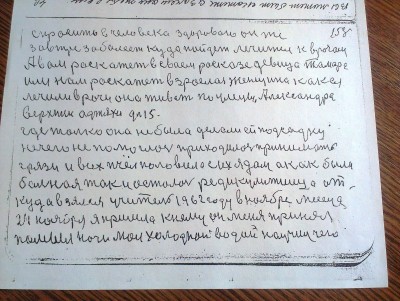 158
спросить в человека здорового он же
завтре заболеет куда пойдет лечится к врачам
Я вам роскажет в своем росказе девица Тамаре
или нам роскажет взрослая женщина какея
лечили врачи она живет по улице Александра
где только она небыла делали ей подсадку
ничего не помогло приходилось принимать
грязи и всех пчёл половила с их ядом а как была
болная так и осталас редикулитница от
куда взялся учитель 1962 году в ноябре месяце
21 ноября я пришла к нему он меня принял
помыл ноги мои холодной водой научил чего